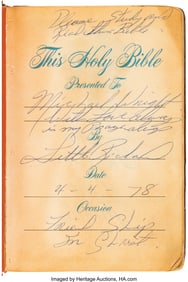 Please Study and
Read this Bible
This Holy Bible
Presented To
Michael Wright
With Love always
in my
By
Little Richard
Date
4 - 4 - 78
Occasion
Friend Ship
In Christ
Imaged by Heritage Auctions, HA.com